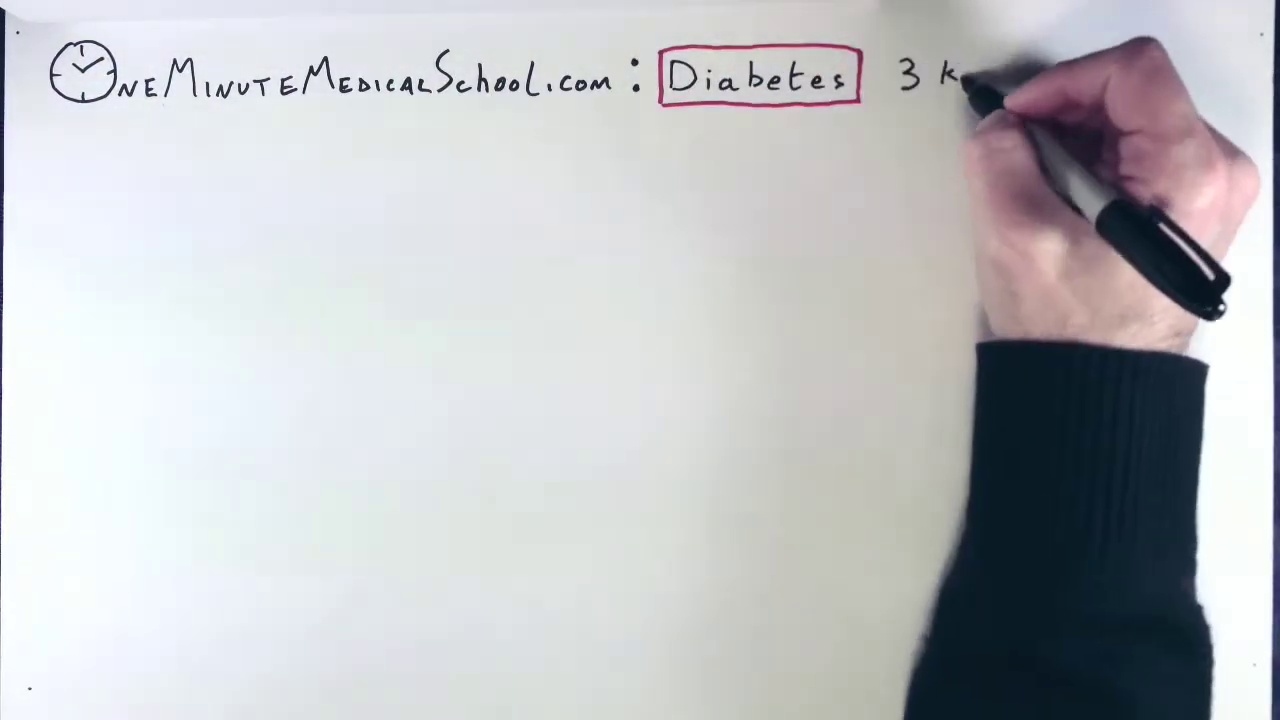 OneMinuteMedicalSchool.com : Diabetes 3 k